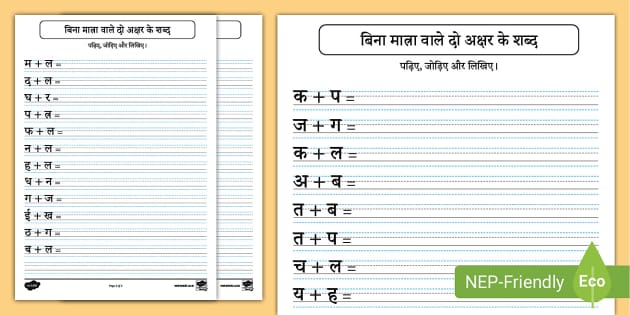 बिना मात्रा वाले दो अक्षर के शब्द
पढ़िए, जोड़िए और लिखिए।
म + ल =
द + ल =
घ + र =
प + त्र =
फ + ल =
न + ल =
ह + ल =
ध + न =
ग + ज =
ई + ख =
ठ + ग =
ब + ल =
बिना मात्रा वाले दो अक्षर के शब्द
पढ़िए, जोड़िए और लिखिए।
क + प =
ज + ग =
क + ल =
अ + ब =
त + ब =
त + प =
च + ल =
य + ह =
NEP-Friendly
Eco